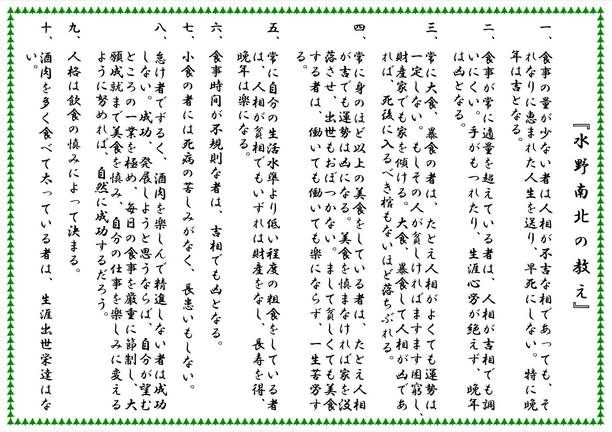 『水野南北の教え』
一、食事の量が少ない者は人相が不吉な相であっても、そ
れなりに恵まれた人生を送り、早死にしない。特に晩
年は吉となる。
二、食事が常に適量を超えている者は、人相が吉相でも調
いにくい。手がもつれたり、生涯心労が絶えず、晩年
は凶となる。
三、常に大食、暴食の者は、たとえ人相がよくても運勢は
一定しない。もしその人が貧しければますます困窮し、
財産家でも家を傾ける。大食、暴食して人相が凶であ
れば、死後に入るべき棺もないほど落ちぶれる。
四、常に身のほど以上の美食をしている者は、たとえ人相
が吉でも運勢は凶になる。美食を慎まなければ家を没
落させ、出世もおぼつかない。まして貧しくても美食
する者は、働いても働いても楽にならず、一生苦労す
五、常に自分の生活水準より低い程度の粗食をしている者
は、人相が貧相でもいずれは財産をなし、長寿を得、
晩年は楽になる。
六、食事時間が不規則な者は、吉相でも凶となる。
七、小食の者には死病の苦しみがなく、長患いもしない。
八、怠け者でずるく、酒肉を楽しんで精進しない者は成功
しない。成功、発展しようと思うならば、自分が望む
ところの一業を極め、毎日の食事を厳重に節制し、大
願成就まで美食を慎み、自分の仕事を楽しみに変える
ように努めれば、自然に成功するだろう。
九、人格は飲食の慎みによって決まる。
十、酒肉を多く食べて太っている者は、生涯出世栄達はな
い。